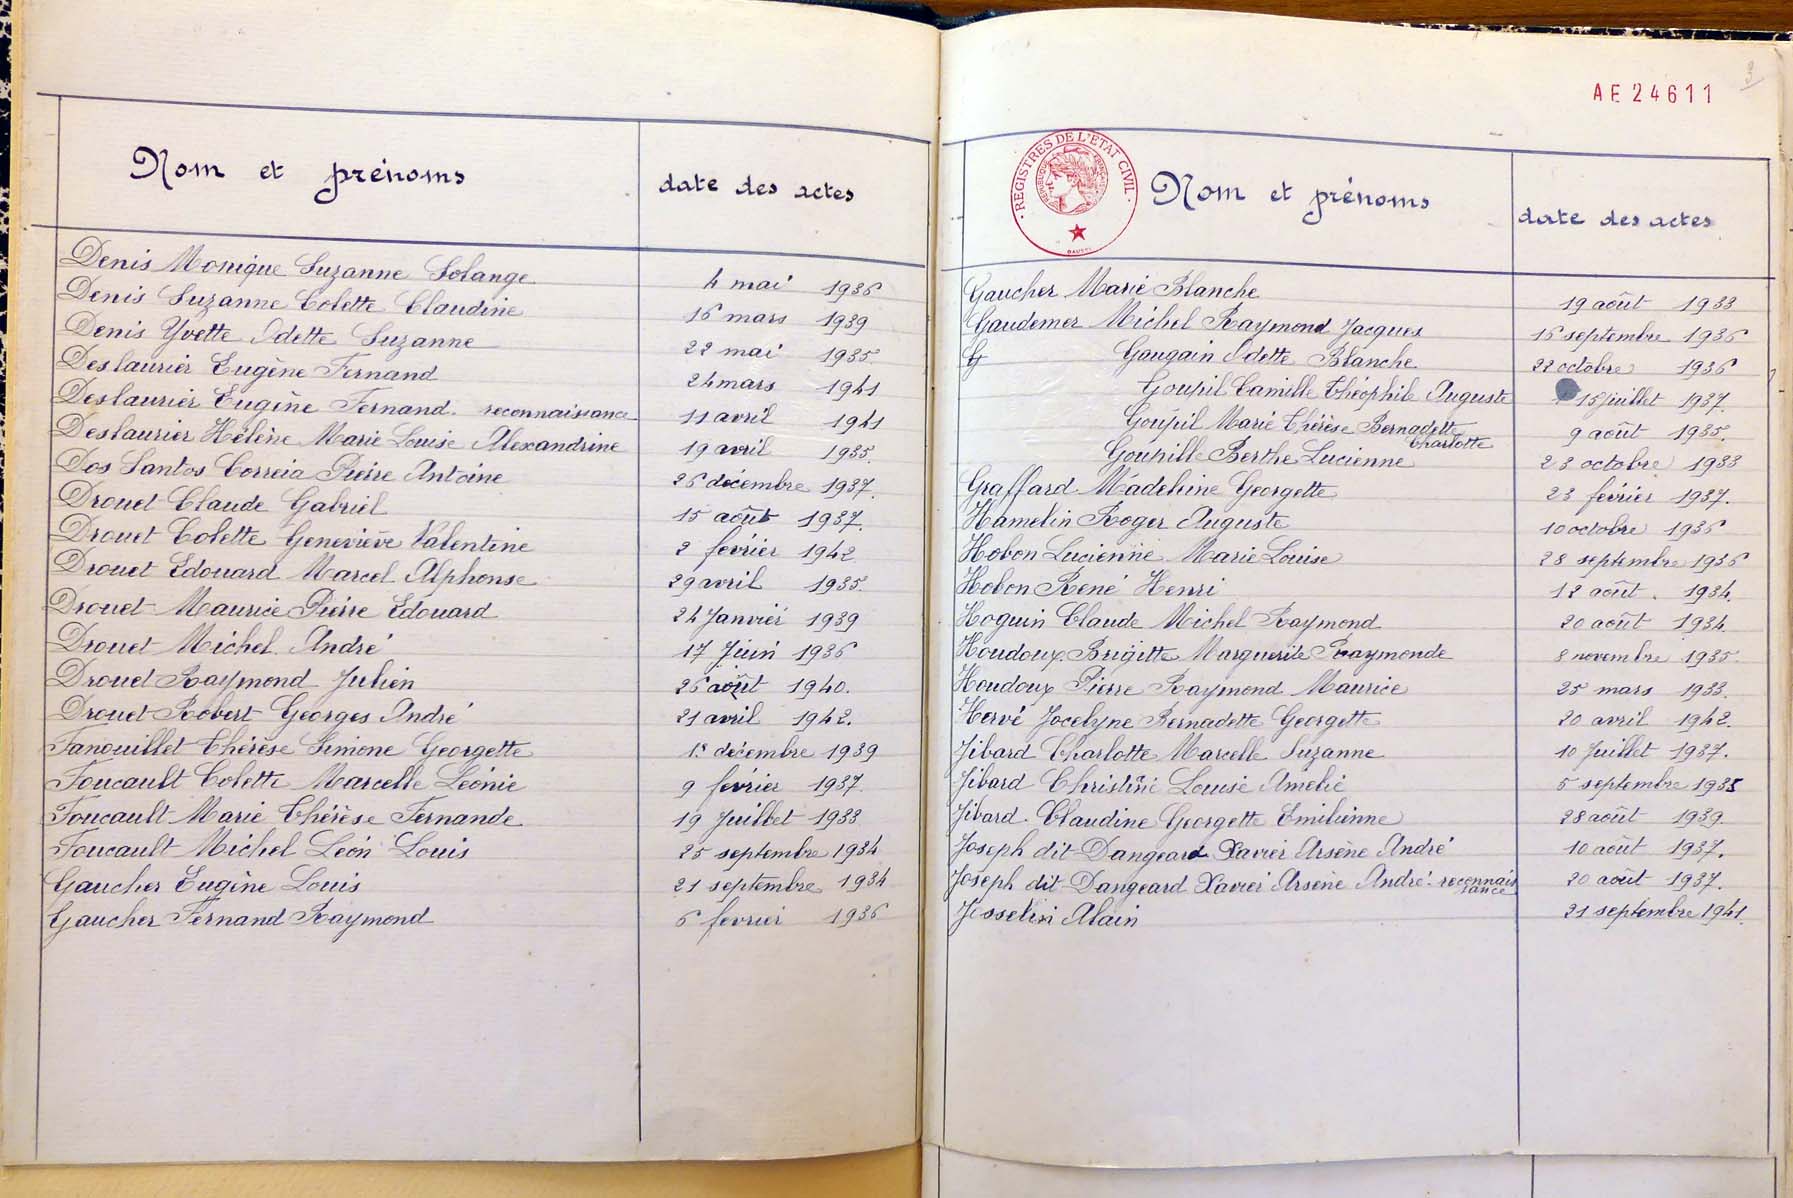 Nom et prénoms
date des actes
Denis Monique Suzanne Solange 4 mai 1936
Denis Suzanne Colette Claudine 16 mars 1939
Denis Yvette Odette Suzanne 22 mai 1935
Deslaurier Eugène Fernand 24 mars 1941
Deslaurier Eugène Fernand. reconnaissance 11 avril 1941
Deslaurier Hélène Marie Louise Alexandrine 19 avril 1935.
Dos Santos Correia Pierre Antoine 26 décembre 1937.
Drouet Claude Gabriel 15 août 1937.
Drouet Colette Geneviève Valentine 2 février 1942
Drouet Edouard Marcel Alphonse 29 avril 1935.
Drouet Maurice Pierre Edouard 24 Janvier 1939
Drouet Michel André 17 Juin 1936
Drouet Raymond Julien 26 août 1940.
Drouet Robert Georges André 21 avril 1942.
Fanouillet Thérèse Simone Georgette 1er décembre 1939
Foucault Colette Marcelle Léonie 9 février 1937.
Foucault Marie Thérèse Fernande 19 Juillet 1933
Foucault Michel Léon Louis 25 septembre 1934
Gaucher Eugène Louis 21 septembre 1934
Gaucher Fernand Raymond 6 février 1936
3
AE 24611
· REGISTRES DE L'ETAT CIVIL ·
REPUBLIQUE FRANÇAISE
Nom et prénoms
date des actes
Gaucher Marie Blanche 19 août 1933
Gaudemer Michel Raymond Jacques 16 septembre 1936
G Gaugain Odette Blanche 22 octobre 1936
Goupil Camille Théophile Auguste 15 Juillet 1937.
Goupil Marie Thérèse Bernadette 9 août 1935.
Charlotte
Goupille Berthe Lucienne 23 octobre 1933
Graffard Madeleine Georgette 23 février 1937.
Hamelin Roger Auguste 10 octobre 1936
Hobon Lucienne Marie Louise 28 septembre 1936
Hobon René Henri 12 août. 1934.
Hoguin Claude Michel Raymond 20 août 1934.
Houdoux Brigitte Marguerite Raymonde 8 novembre 1935.
Houdoux Pierre Raymond Maurice 25 mars 1933.
Hervé Jocelyne Bernadette Georgette 20 avril 1942.
Jibard Charlotte Marcelle Suzanne 10 Juillet 1937.
Jibard Christine Louise Amélie 5 septembre 1935
Jibard Claudine Georgette Emilienne 28 août 1939
Joseph dit Dangeard Xavier Arsène André 10 août 1937.
Joseph dit Dangeard Xavier Arsène André. reconnais 20 août 1937.
sance
Josselin Alain 21 septembre 1941.